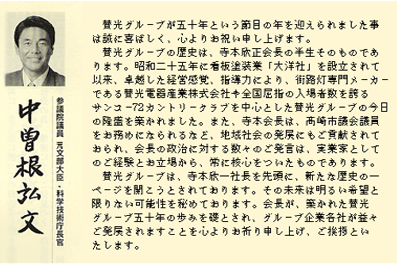 賛光グループが五十年という節目の年を迎えられました事
は誠に喜ばしく、心よりお祝い申し上げます。
賛光グループの歴史は、寺本欣正会長の半生そのものであ
ります。昭和二十五年に看板塗装業「大洋社」を設立されて
以来、卓越した経営感覚、指導力により、街路灯専門メーカー
である賛光電器産業株式会社や全国屈指の入場者数を誇る
サンコー72カントリークラブを中心とした賛光グループの今日
の隆盛を築かれました。また、寺本会長は、高崎市議会議員
をお務めになられるなど、地域社会の発展にもご貢献されて
おられ、会長の政治に対する数々のご発言は、実業家として
のご経験とお立場から、常に核心をついたものであります。
賛光グループは、寺本欣一社長を先頭に、新たな歴史の一
ページを開こうとされております。その未来は明るい希望と
限りない可能性を秘めております。会長が、築かれた賛光
グループ五十年の歩みを礎とされ、グループ企業各社が益々
ご発展されますことを心よりお祈り申し上げ、ご挨拶といた
します。
参議院議員 元文部大臣・科学技術庁長官
中曽根弘文